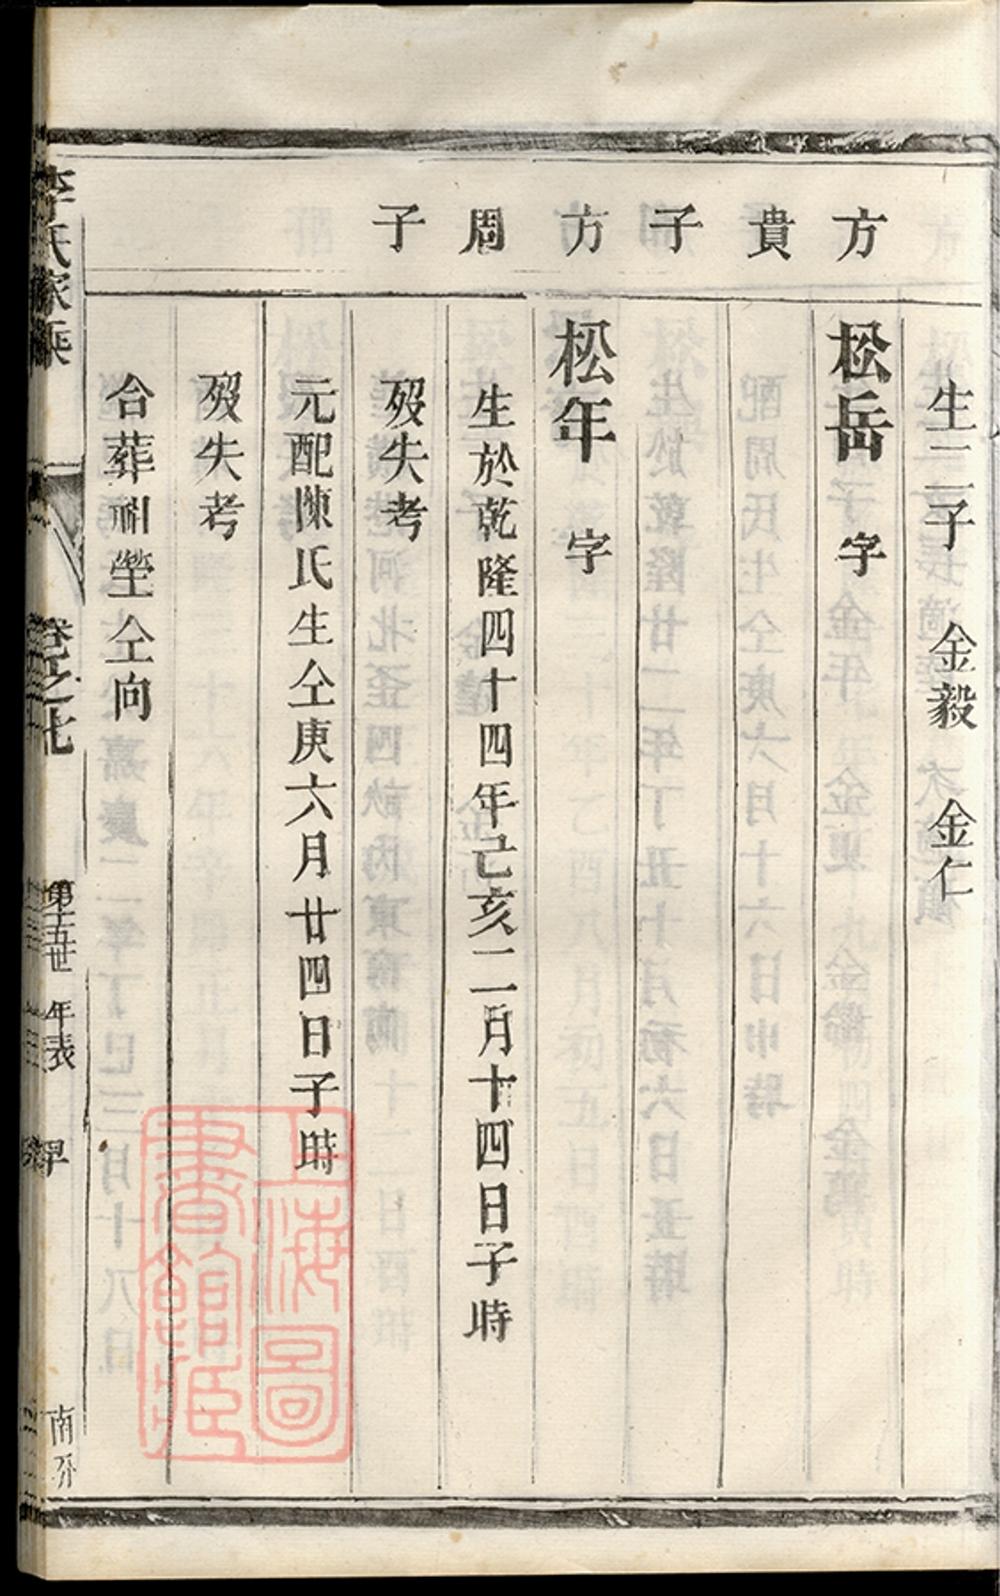 方貴子
方周子
生二子　金毅　金仁
松岳　字
松年　字
生於乾隆四十四年己亥二月十四日子時
歿失考
元配陳氏生仝庚六月廿四日子時
歿失考
合葬祖塋仝向
李氏家乘
卷之七
第十五世　年表
上海圖
書館藏